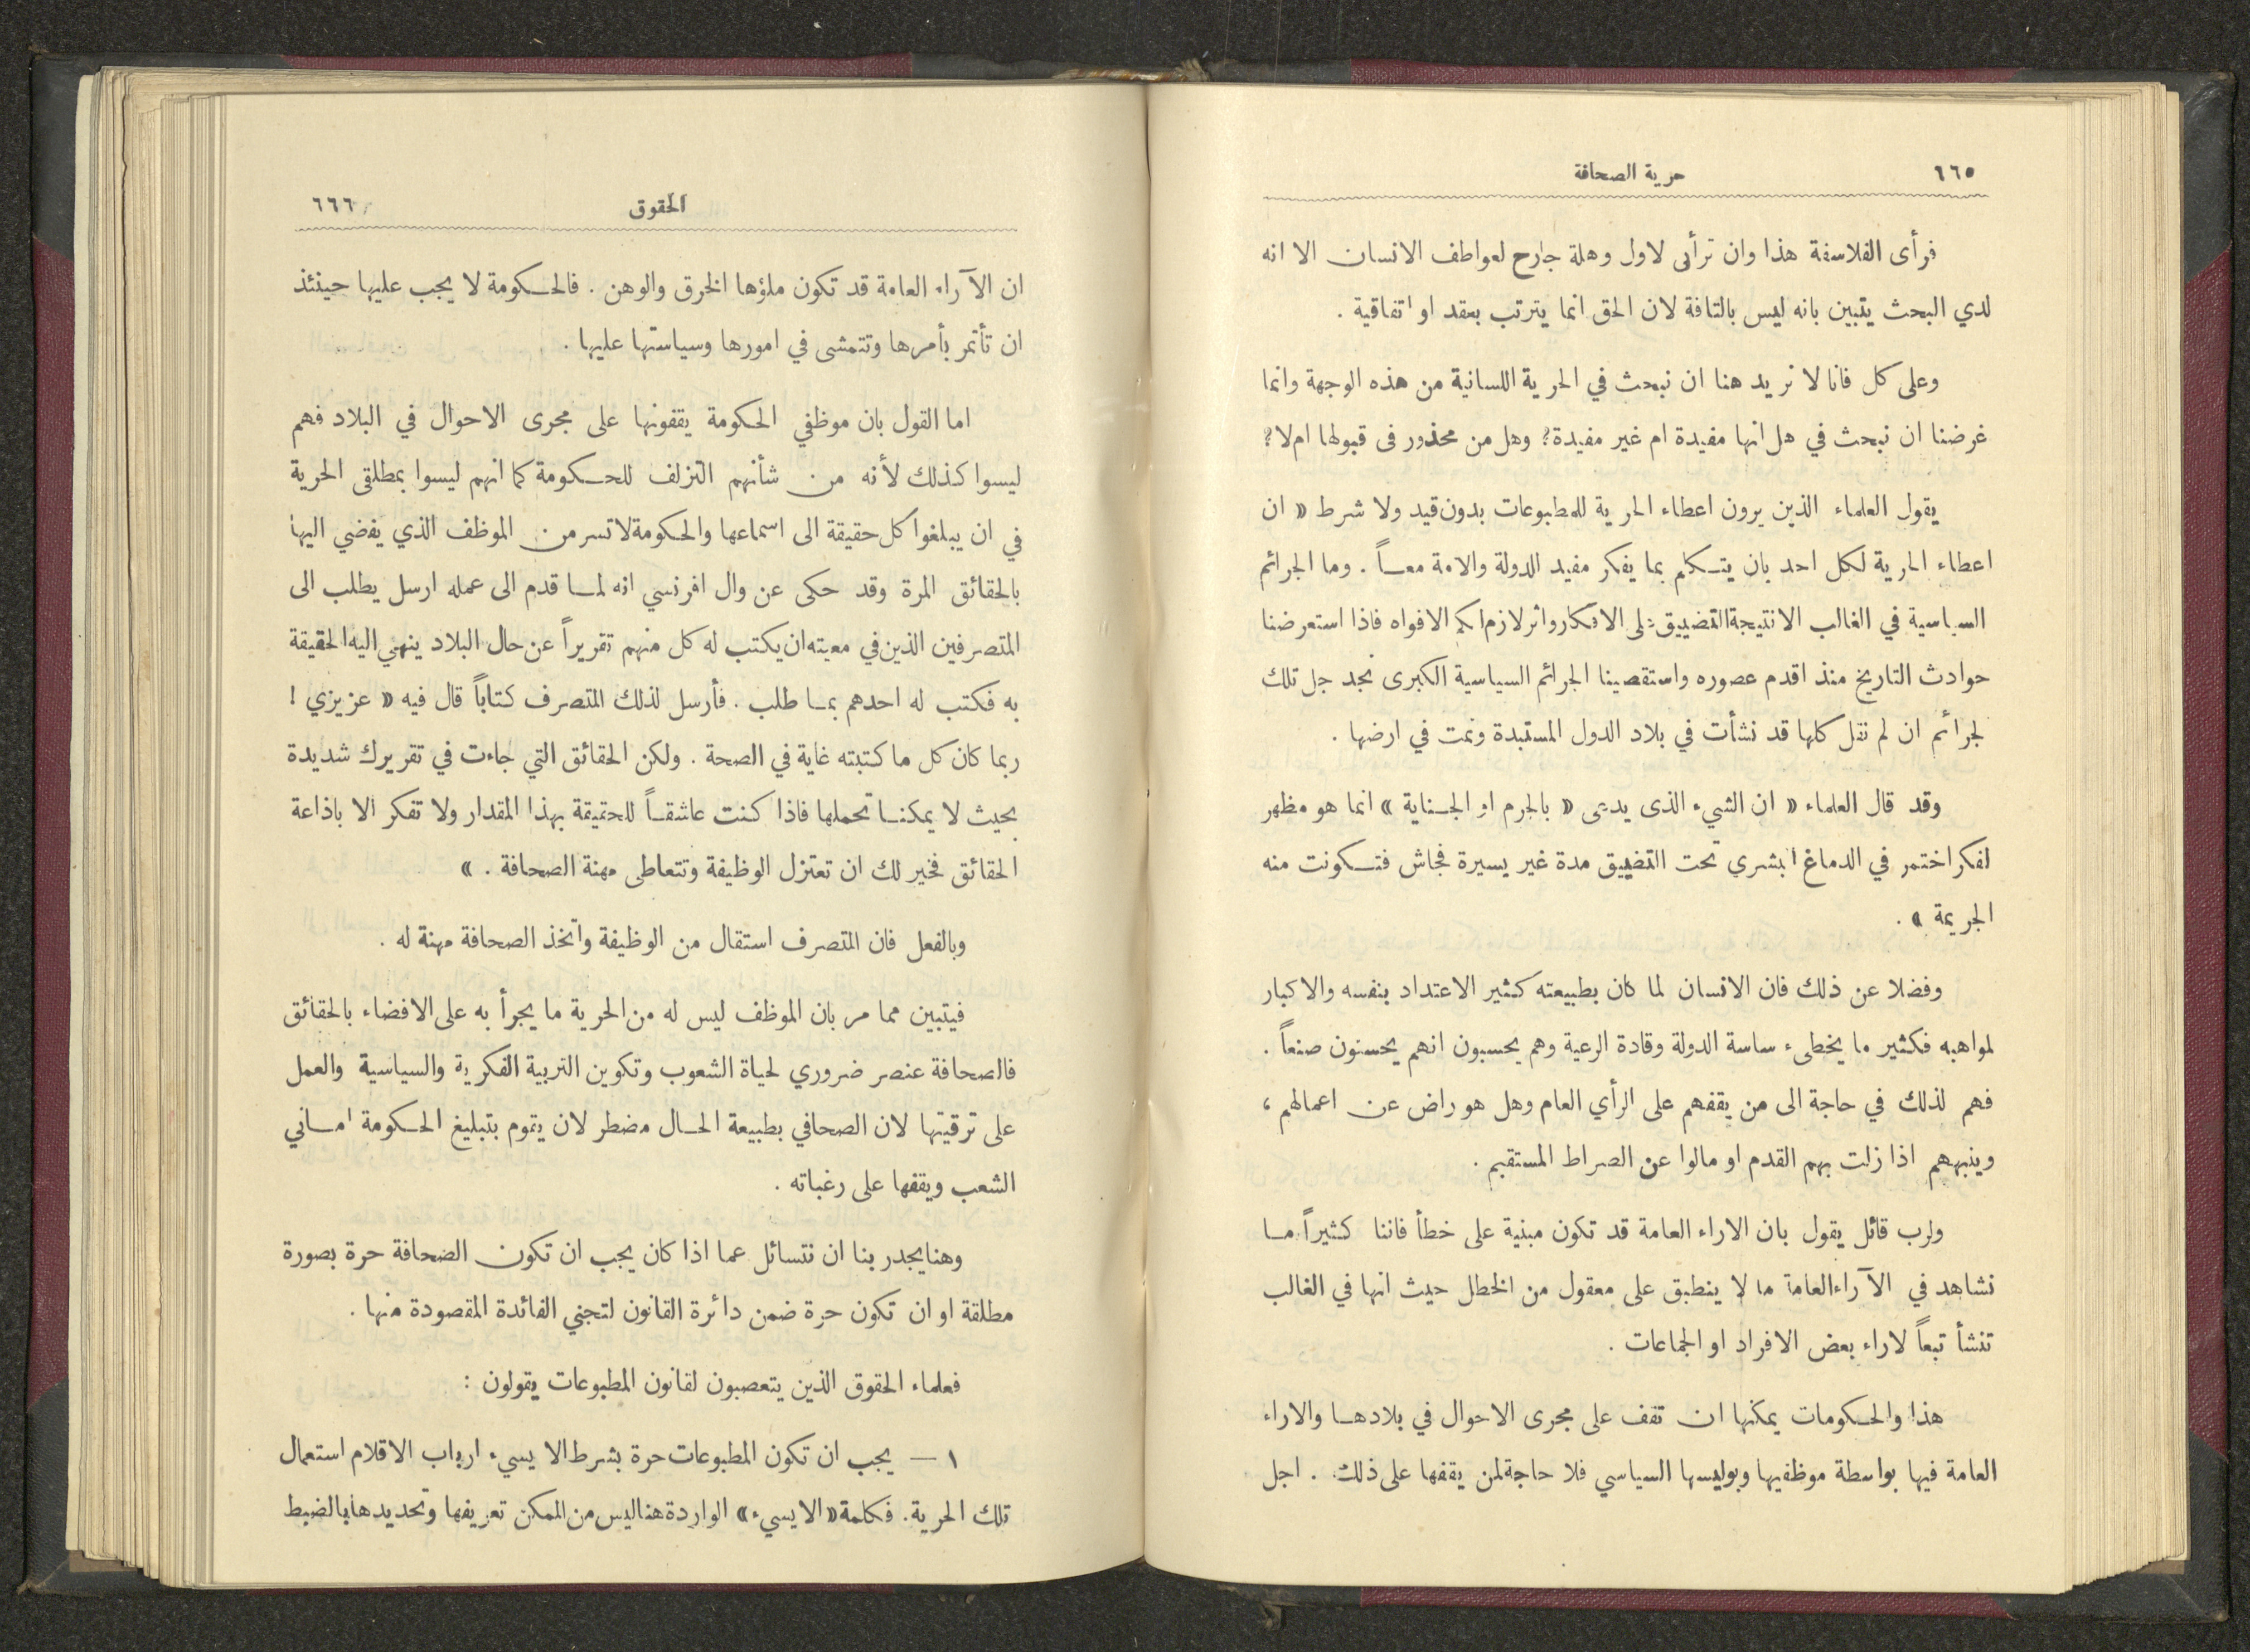 ٦٦٥
حرية الصحافة
فرأى الفلاسفة هذا وان ترأى لاول وهلة جارح لعواطف الانسان الا انه
لدي البحث يتبين بانه ليس بالتافة لان الحق انما يترتب بعقد او اتفاقية .
وعلى كل فانا لا نريد هنا ان نبحث في الحرية اللسانية من هذه الوجهة وانما
غرضنا ان نبحث في هل انها مفيدة ام غير مفيدة؟ وهل من محذور فى قبولها ام لا؟
يقول العلماء الذين يرون اعطاء الحرية للمطبوعات بدون قيد ولا شرط « ان
اعطاء الحرية لكل احد بان يتكلم بما يفكر مفيد الدولة والامة معاً . وما الجرائم
السياسية في الغالب الا نتيجة التضييق على الافكار واثر لازم لكم الافواه فاذا استعرضنا
حوادث التاريخ منذ اقدم عصوره واستقصينا الجرائم السياسية الكبرى نجد جل تلك
لجرائم ان لم نقل كلها قد نشأت في بلاد الدول المستبدة ونمت في ارضها .
وقد قال العلماء « ان الشيء الذى يدعى « بالجرم او الجناية » انما هو مظهر
لفكر اختمر في الدماغ البشري تحت التضييق مدة غير يسيرة فجاش فتكونت منه
الجريمة » .
وفضلا عن ذلك فان الانسان لما كان بطبيعته كثير الاعتداد بنفسه والاكبار
لمواهبه فكثير ما يخطىء ساسة الدولة وقادة الرعية وهم يحسبون انهم يحسنون صنعاً .
فهم لذلك في حاجة الى من يقفهم على الرأي العام وهل هو راض عن اعمالهم ،
وينبههم اذا زلت بهم القدم او مالوا عن الصراط المستقيم .
ولرب قائل يقول بان الاراء العامة قد تكون مبنية على خطأ فاننا كثيراً ما
نشاهد في الآراء العامة ما لا ينطبق على معقول من الخطل حيث انها في الغالب
تنشأ تبعاً لاراء بعض الافراد او الجماعات .
هذا والحكومات يمكنها ان تقف على مجرى الاحوال في بلادها والاراء
العامة فيها بواسطة موظفيها وبوليسها السياسي فلا حاجة لمن يقفها على ذلك . اجل
الحقوق
٦٦٦
ان الآراء العامة قد تكون ملؤها الخرق والوهن . فالحكومة لا يجب عليها حينئذ
ان تأتمر بأمرها وتتمشى في امورها وسياستها عليها .
اما القول بان موظفي الحكومة يقفونها على مجرى الاحوال في البلاد فهم
ليسوا كذلك لأنه من شأنهم التزلف للحكومة كما انهم ليسوا بمطلقى الحرية
في ان يبلغوا كل حقيقة الى اسماعها والحكومة لا تسر من الموظف الذي يفضي اليها
بالحقائق المرة وقد حكى عن وال افرنسي انه لما قدم الى عمله ارسل يطلب الى
المتصرفين الذين في معيته ان يكتب له كل منهم تقريراً عن حال البلاد ينهي اليه الحقيقة
به فكتب له احدهم بما طلب . فأرسل لذلك المتصرف كتاباً قال فيه « عزيزي !
ربما كان كل ما كتبته غاية في الصحة . ولكن الحقائق التي جاءت في تقريرك شديدة
بحيث لا يمكننا تحملها فاذا كنت عاشقاً للحقيقة بهذا المقدار ولا تفكر الا باذاعة
الحقائق فخير لك ان تعتزل الوظيفة وتتعاطى مهنة الصحافة . »
وبالفعل فان المتصرف استقال من الوظيفة واتخذ الصحافة مهنة له .
فيتبين مما مر بان الموظف ليس له من الحرية ما يجرأ به على الافضاء بالحقائق
فالصحافة عنصر ضروري لحياة الشعوب وتكوين التربية الفكرية والسياسية والعمل
على ترقيتها لان الصحافي بطبيعة الحال مضطر لان يقوم بتبليغ الحكومة اماني
الشعب ويقفها على رغباته .
وهنا يجدر بنا ان نتسائل عما اذا كان يجب ان تكون الصحافة حرة بصورة
مطلقة او ان تكون حرة ضمن دائرة القانون لتجني الفائدة المقصودة منها .
فعلماء الحقوق الذين يتعصبون لقانون المطبوعات يقولون :
١ — يجب ان تكون المطبوعات حرة بشرط الا يسيء ارباب الاقلام استعمال
تلك الحرية . فكلمة « الا يسيء » الواردة هنا ليس من الممكن تعريفها وتحديدها بالضبط